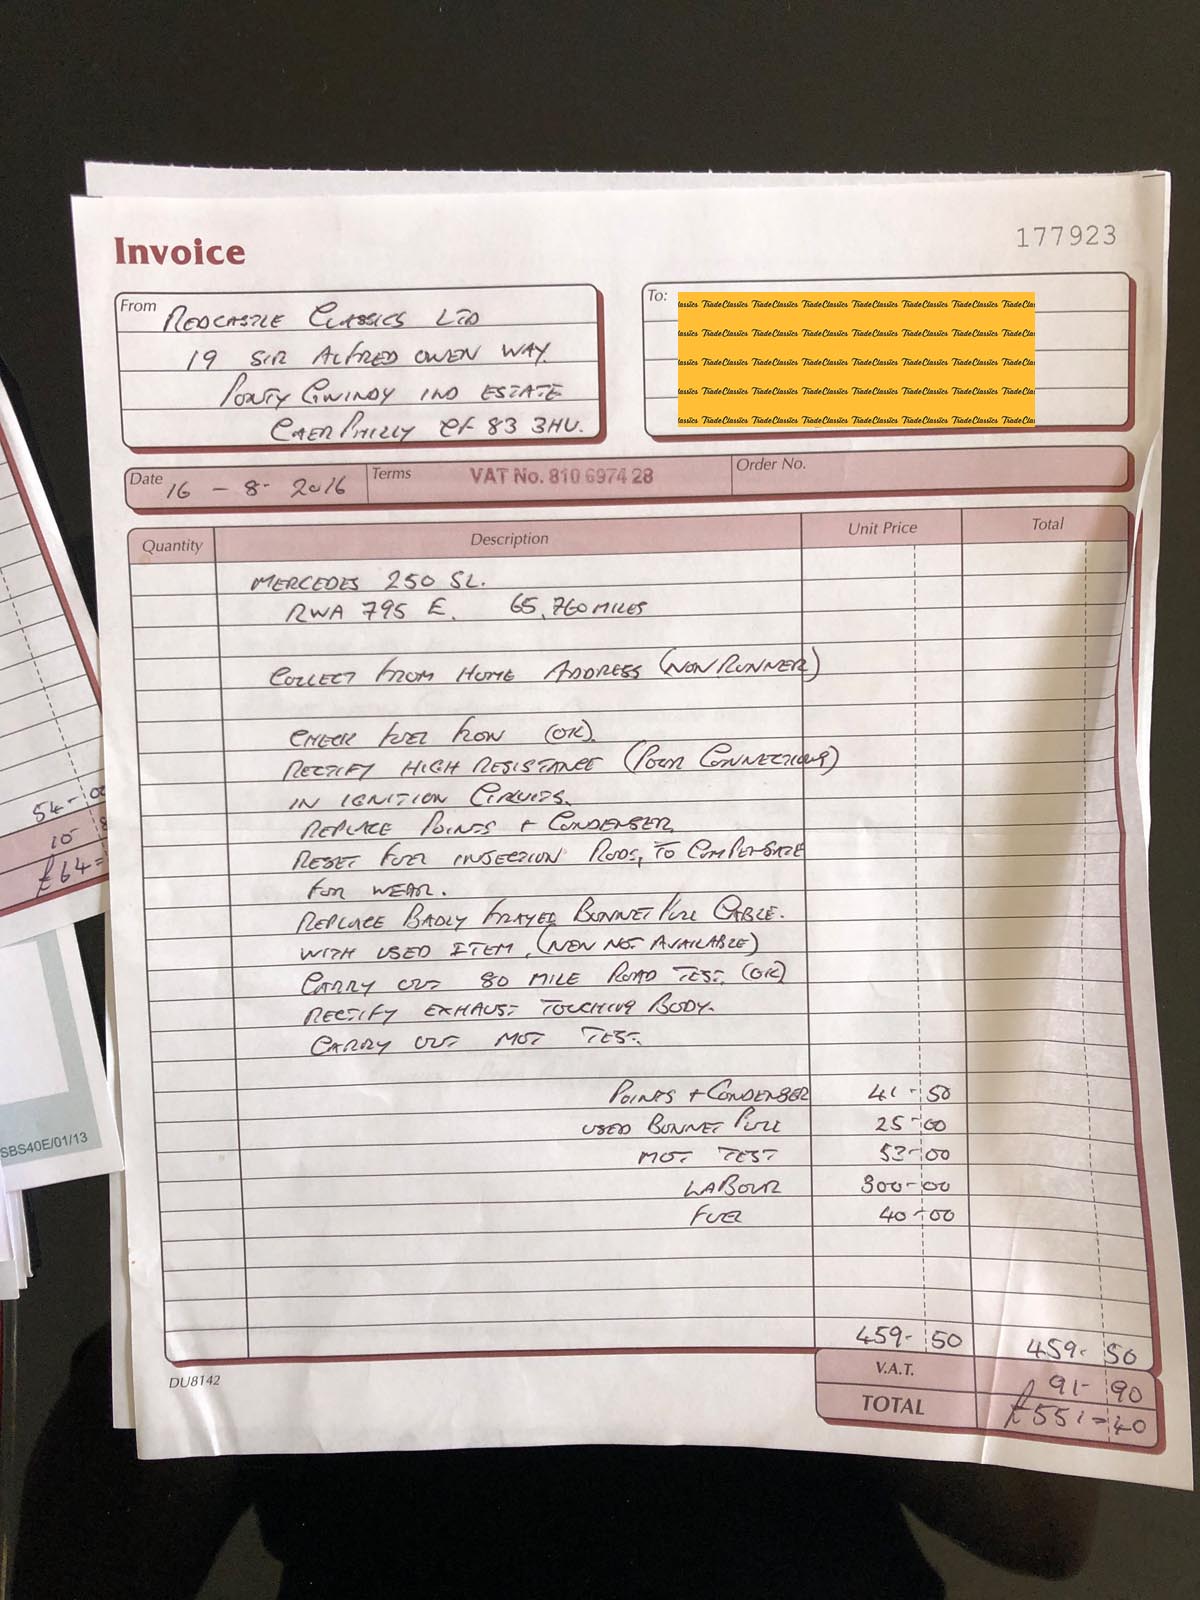 Invoice
177923
From
REDCASTLE CLASSICS LTD
19 SIR ALFRED OWEN WAY.
PONTYGWINDY IND ESTATE
CAERPHILLY CF 83 3HU.
To:
TradeClassics TradeClassics TradeClassics TradeClassics TradeClassics TradeClassics
TradeClassics TradeClassics TradeClassics TradeClassics TradeClassics TradeClassics
TradeClassics TradeClassics TradeClassics TradeClassics TradeClassics TradeClassics
TradeClassics TradeClassics TradeClassics TradeClassics TradeClassics TradeClassics
TradeClassics TradeClassics TradeClassics TradeClassics TradeClassics TradeClassics
Date 16 - 8 - 2016 Terms VAT No. 810 6974 28 Order No.
Quantity Description Unit Price Total
MERCEDES 250 SL.
RWA 795 E. 65,760 MILES
COLLECT FROM HOME ADDRESS (NON RUNNER)
CHECK FUEL FLOW (OK).
RECTIFY HIGH RESISTANCE (POOR CONNECTIONS)
IN IGNITION CIRCUITS.
REPLACE POINTS + CONDENSER
RESET FUEL INJECTION RODS, TO COMPENSATE
FOR WEAR.
REPLACE BADLY FRAYED BONNET PULL CABLE.
WITH USED ITEM, (NEW NOT AVAILABLE)
CARRY OUT 80 MILE ROAD TEST. (OK)
RECTIFY EXHAUST TOUCHING BODY.
CARRY OUT MOT TEST.
POINTS + CONDENSER 41-50
USED BONNET PULL 25-00
MOT TEST 53-00
LABOUR 300-00
FUEL 40-00
459-50 459-50
V.A.T. 91-90
TOTAL £551=40
DU8142
54-00
10 8
£64=
SBS40E/01/13